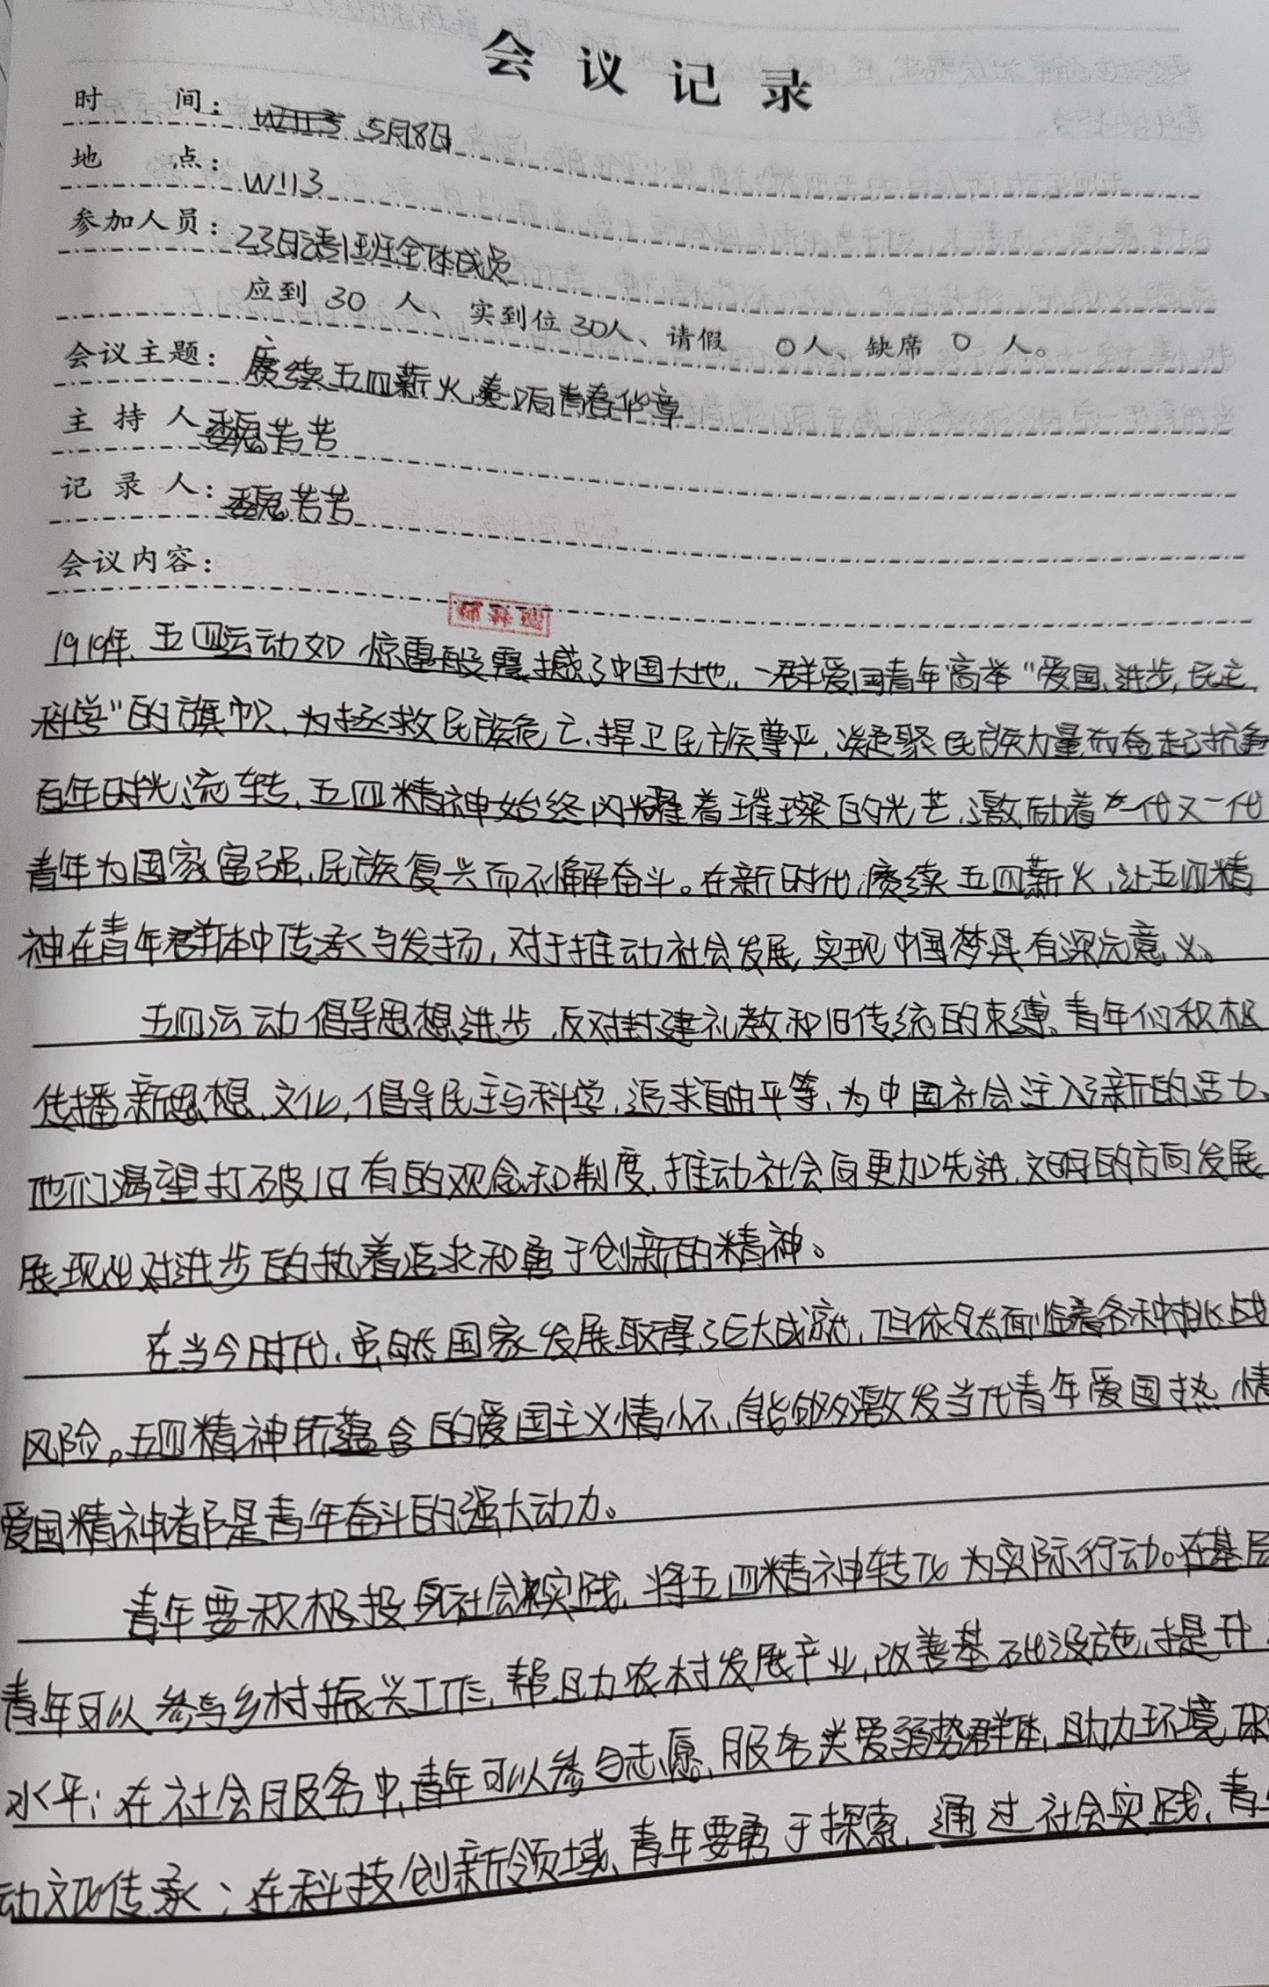 会议记录
时 间: W113 5月8日
地 点: W113
参加人员: 23日语1班全体成员
应到 30 人、实到位 30人、请假 0人、缺席 0 人。
会议主题: 赓续五四薪火,奏响青春华章
主 持 人 魏芳芳
记 录 人: 魏芳芳
会议内容:
1919年,五四运动如惊雷般震撼了中国大地,一群爱国青年高举“爱国,进步,民主,
科学”的旗帜,为拯救民族危亡,捍卫民族尊严,凝聚民族力量而奋起抗争
百年时光流转,五四精神始终闪耀着璀璨的光芒,激励着一代又一代
青年为国家富强,民族复兴而不懈奋斗。在新时代,赓续五四薪火,让五四精
神在青年群体中传承与发扬,对于推动社会发展,实现中国梦具有深远意义。
五四运动倡导思想进步,反对封建礼教和旧传统的束缚,青年们积极
传播新思想,文化,倡导民主与科学,追求自由平等,为中国社会注入了新的活力,
他们渴望打破旧有的观念和制度,推动社会向更加先进,文明的方向发展
展现出对进步的执着追求和勇于创新的精神。
在当今时代,虽然国家发展取得了巨大成就,但依然面临着各种挑战
风险。五四精神所蕴含的爱国主义情怀,能够激发当代青年爱国热情
爱国精神都是青年奋斗的强大动力。
青年要积极投身社会实践,将五四精神转化为实际行动。在基层
青年可以参与乡村振兴工作,帮助农村发展产业,改善基础设施,提升
水平;在社会服务中,青年可以参与志愿,服务关爱弱势群体,助力环境
动文化传承;在科技创新领域,青年要勇于探索,通过社会实践,青